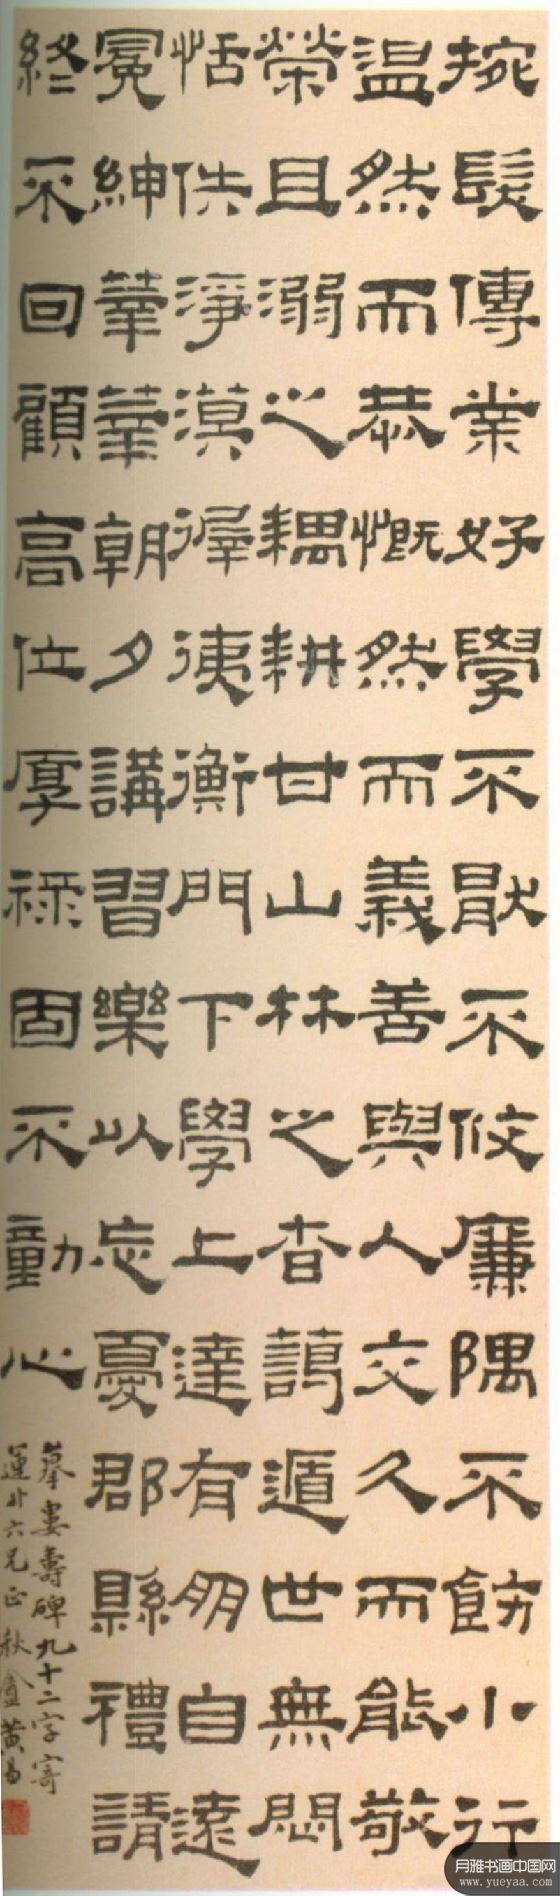 捥髮傳業好學不厭不攸廉隅不飭小行
温然而恭慨然而義善與人交久而能敬
榮且溺之耦耕甘山林之杳藹遁世無悶
恬佚淨漠徲𢓡衡門下學上達有朋自遠
冕紳莘莘朝夕講習樂以忘憂郡縣禮請
終不回顧高位厚祿固不動心
摹婁壽碑九十二字寄
六兄正 秋盦黃易
月雅书画中国网
www.yueyaa.com